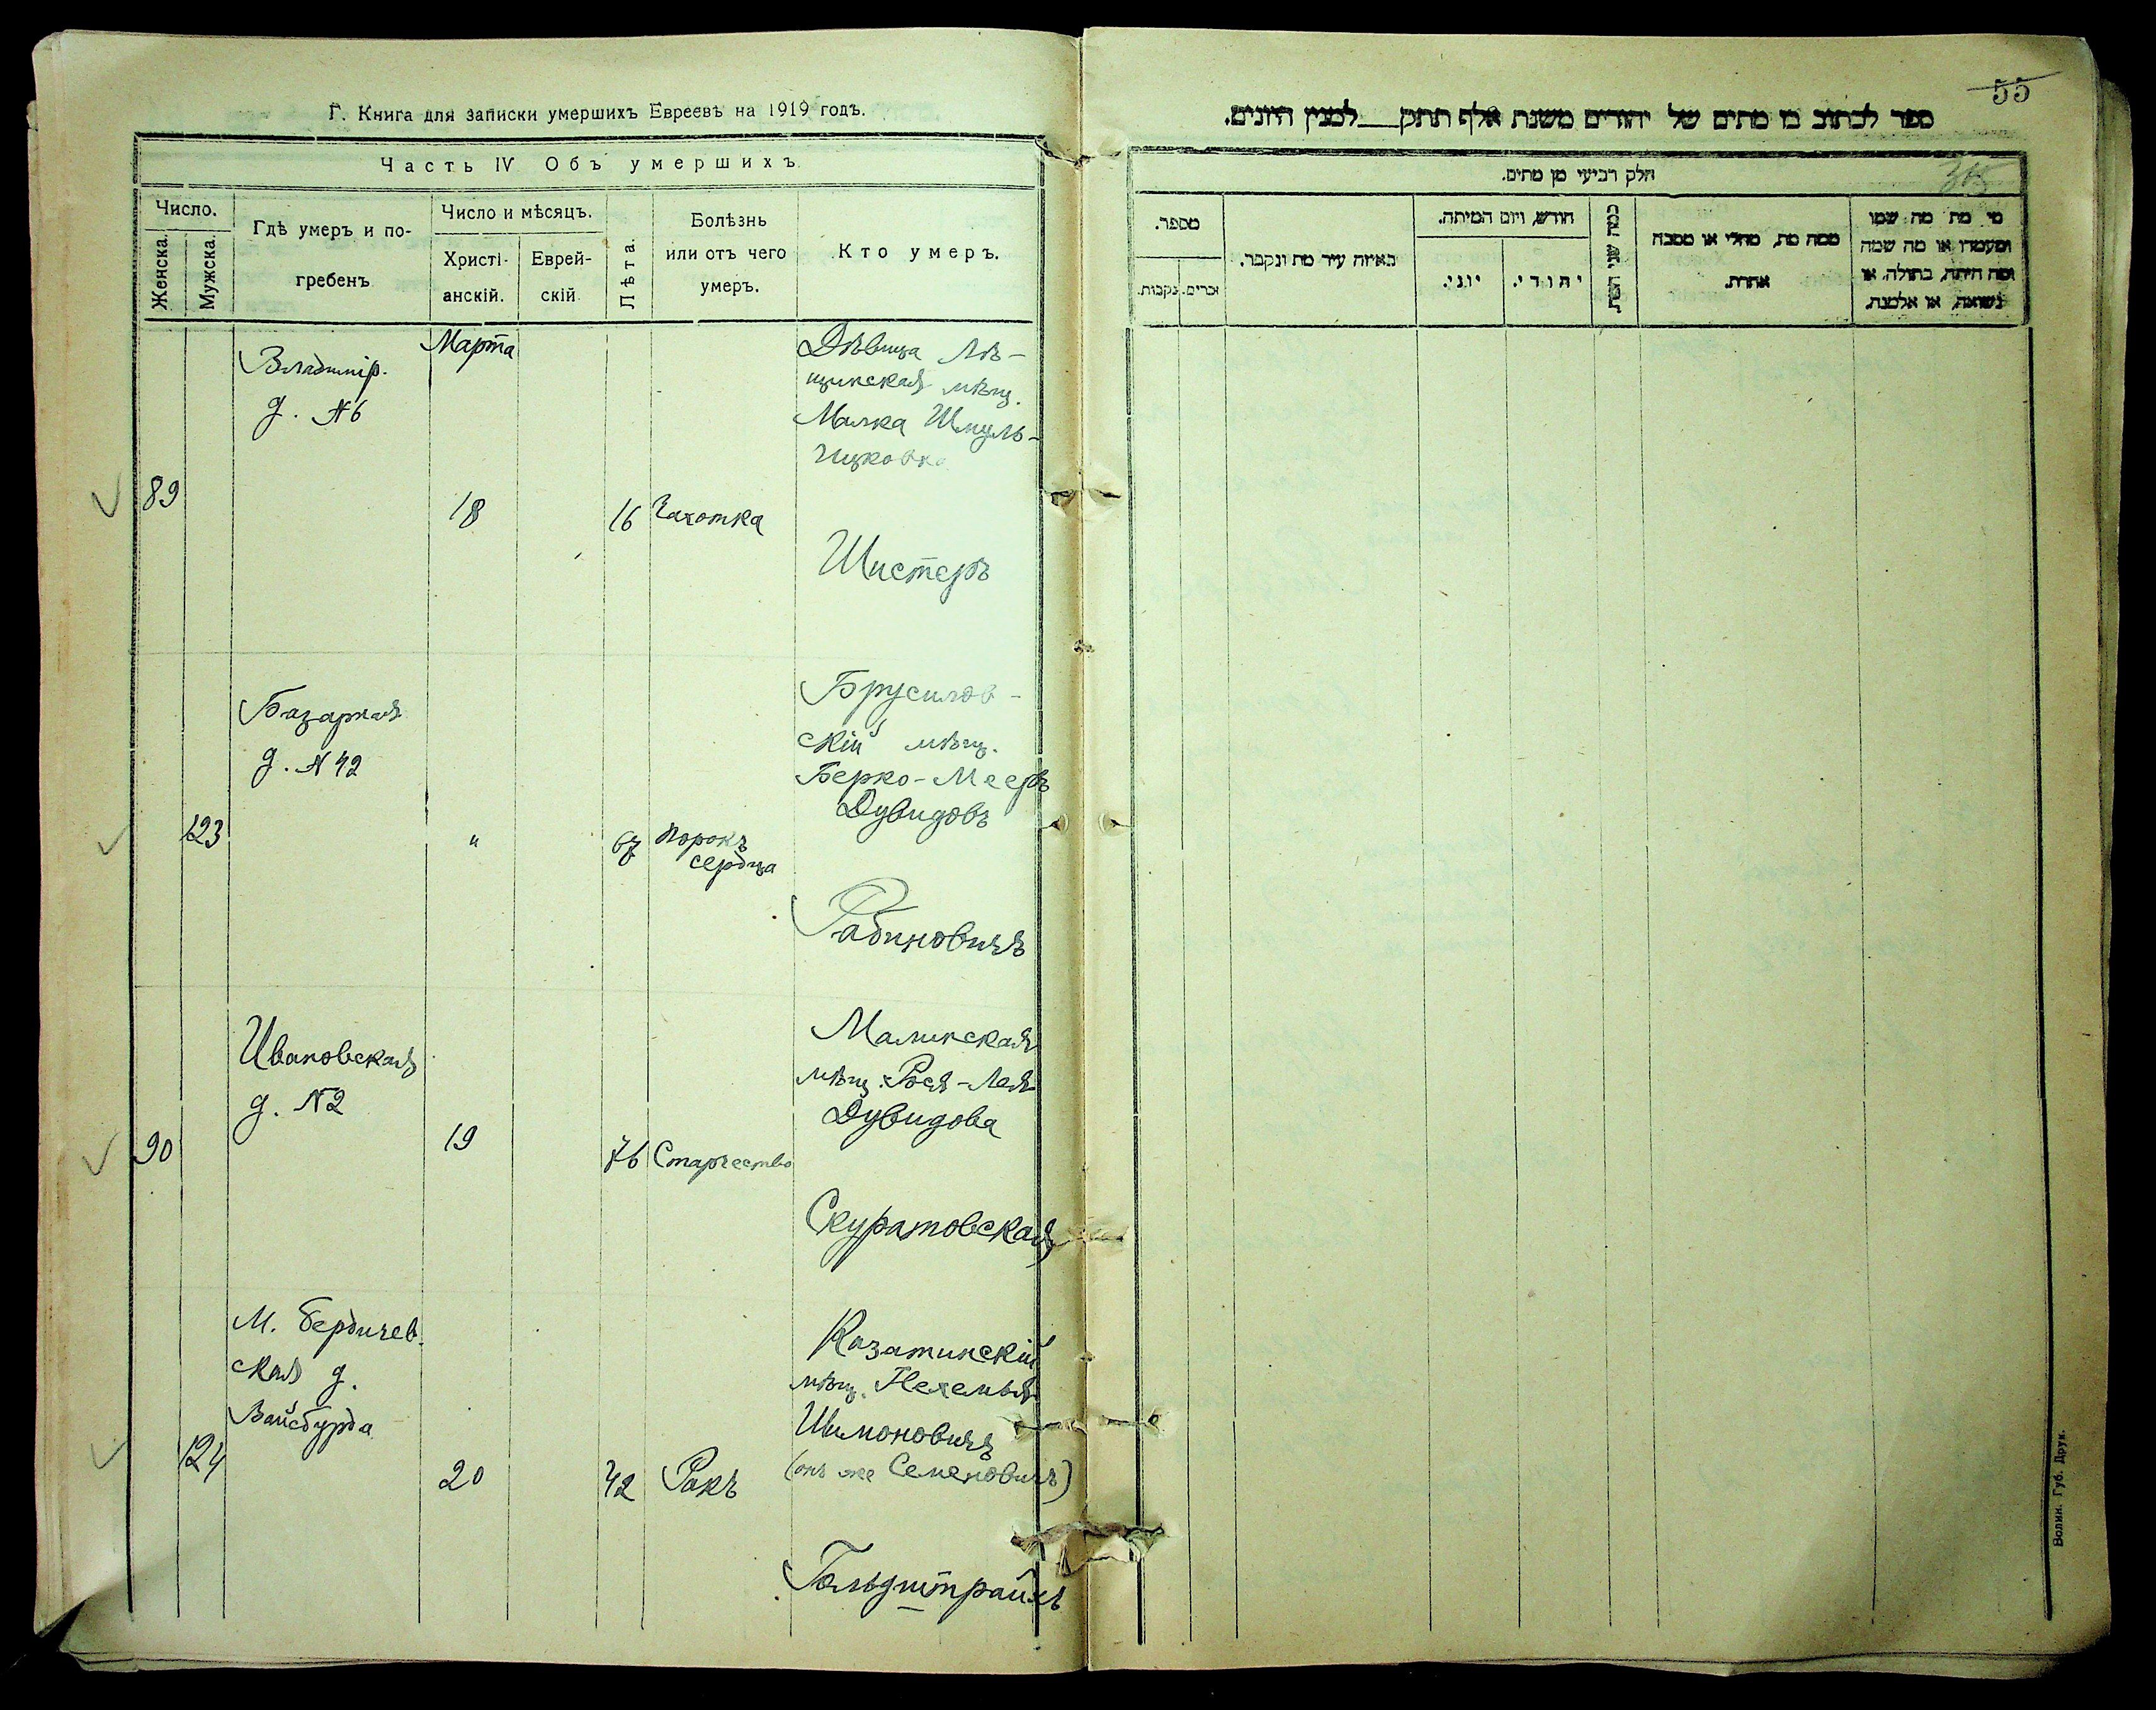 Г. Книга для записки умершихъ Евреевъ на 1919 годъ.
Часть IV Объ умершихъ
Число.
Женска.
Мужска.
Гдѣ умеръ и по-
гребенъ
Число и мѣсяцъ.
Христі-
анскій.
Еврей-
скій
Лѣта.
Болѣзнь
или отъ чего
умеръ.
Кто умеръ.
Марта
Владимір.
д. №6
89
18
16
Чахотка
Дѣвица Лѣ-
щинская мѣщ.
Малка Шмуль-
Ицковна
Шистеръ
Базарная
д. №42
123
"
67
Порокъ
сердца
Брусилов-
скій мѣщ.
Берко-Мееръ
Дувидовъ
Рабиновичъ
Ивановская
д. №2
90
19
76
Старчество
Малинская
мѣщ. Рося-Лея
Дувидова
Скуратовская
М. Бердичев.
ская д.
Вайсбурда
124
20
42
Ракъ
Казатинскій
мѣщ. Нехемья
Шимоновичъ
(онъ же Семеновичъ)
Гольдштрайхъ
55
ספר לכתוב בו מתים של יהודים משנת אלף תתק___למנין היונים.
305
חלק רביעי מן מתים.
מספר.
זכרים.
נקבות.
באיזה עיר מת ונקבר.
חודש, ויום המיתה.
יוני.
יהודי.
כמה שני המת
ממה מת, מחלי או מסבה
אחרת.
מי מת מה שמו
ומעמדו או מה שמה
ומה היתה, בתולה, או
נשואה, או אלמנה.
Волин. Губ. Друк.